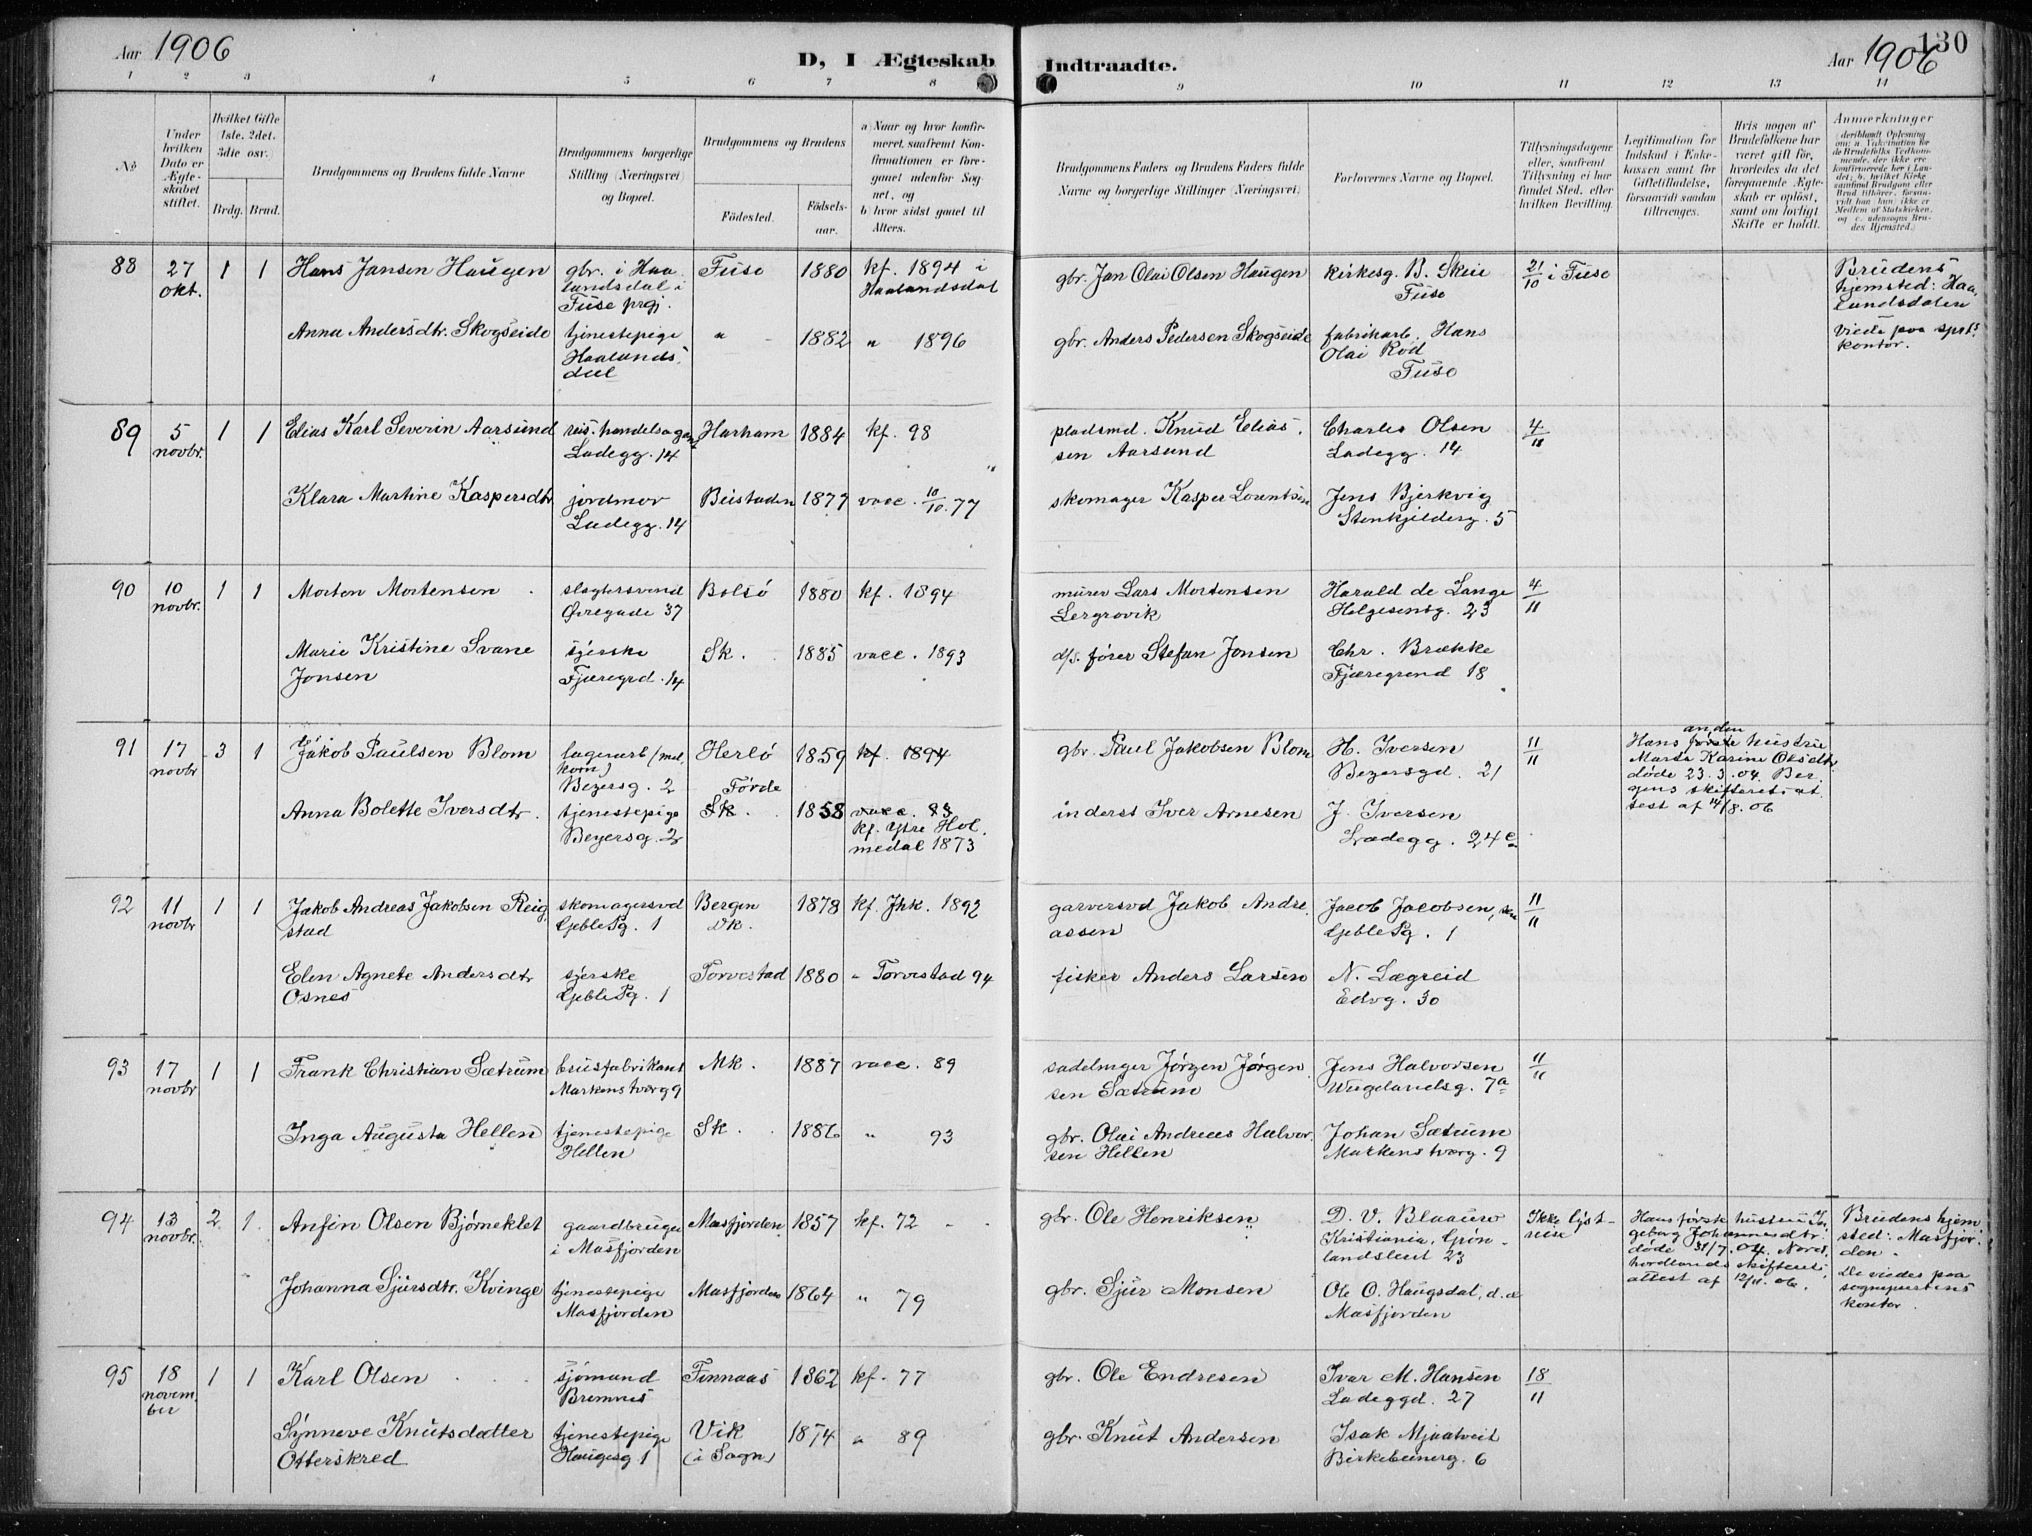 130
Aar 1906
D, I Ægteskab Indtraadte.
Aar 1906
1 2 3 4 5 6 7 8 9 10 11 12 13 14
No
Under hvilken Dato er Ægteskabet stiftet.
Hvilket Gifte 1ste. 2det. 3die osv.)
Brdg. Brud.
Brudgommens og Brudens fulde Navne
Brudgommens borgerlige Stilling (Næringsvei) og Bopæl.
Brudgommens og Brudens
Födested.
Födselsaar.
a) Naar og hvor konfirmeret, saafremt Konfirmationen er foregaaet udenfor Sognet, og
b) hvor sidst gaaet til Alters.
Brudgommens Faders og Brudens Faders fulde Navne og borgerlige Stillinger (Næringsvei)
Forlovernes Navne og Bopæl.
Tillysningsdagene eller, saafremt Tillysning ei har fundet Sted, efter hvilken Bevilling.
Legitimation for Indskud i Enkekassen samt for Giftetilladelse, forsaavidt saadan tiltrænges.
Hvis nogen af Brudefolkene har været gift før, hvorledes da det foregaaende Ægteskab er oplöst, samt om lovligt Skifte er holdt.
Anmerkninger (deriblandt Oplysning om: a. Vakcination for de Brudefolks Vedkommende, der ikke ere konfirmerede her i Landet; b. hvilket Kirkesamfund Brudgom eller Brud tilhører, forsaavidt han/hun ikke er Medlem af Statskirken, og c. udensogns Brudes Hjemsted.)
88
27 okt.
1 1
Hans Jansen Haugen
gbr. i Haalandsdal i Fuse prgj.
Fuse
1880
kf. 1894 i Haalandsdal
gbr. Jan Olai Olsen Haugen
Kirkesg. B. Skeie Fuse
21/10 i Fuse
Brudens hjemsted: Haalandsdalen
Anna Andersdtr. Skogseide
tjenestepige Haalandsdal
"
1882
" 1896
gbr. Anders Pedersen Skogseide
fabrikarb. Hans Olai Rød Fuse
Viede paa sprts kontor.
89
5 novbr.
1 1
Elias Karl Severin Aarsund
reis. handelsagent Ladegg. 14
Harham
1884
kf. 98
pladsmd. Knud Eliassen Aarsund
Charles Olsen Ladegg. 14
4/11
Klara Martine Kaspersdtr
jordmor Ladegg. 14
Beistaden
1877
vacc. 10/10. 77
skomager Kasper Lorntsen
Jens Bjerkvig Stenkjelderg. 5
90
10 novbr.
1 1
Morten Mortensen
slagtersvend Øvregade 37
Bolsö
1880
kf. 1894
murer Lars Mortensen Lergrovik
Harald de Lange Helgesensg. 23
4/11
Marie Kristine Svane Jonsen
syerske Fjæregrd. 14
Sk.
1885
vacc. 1893
d/s. fører Stefan Jonsen
Chr. Brække Fjæregrend 18
91
17 novbr
3 1
Jakob Paulsen Blom
lagerarb (mel, korn) Beyersg. 2
Herlö
1859
kf. 1894
gbr. Paul Jakobsen Blom
H. Iversen Beyersgd. 21
11/11
Hans første anden hustru Marta Karine Olsdtr døde 23.3.04. Bergens skifterets attest af 14/8.06
Anna Bolette Iversdtr.
tjenestepige Beyersg. 2
Förde Sk.
1858
vacc. 83 kf. Ytre Holmedal 1873
inderst Iver Arnesen
J. Iversen Ladegg. 24c
92
11 novbr
1 1
Jakob Andreas Jakobsen Reigstad
skomagersvd Geble Pg. 1
Bergen Dk.
1878
kf. Jhk. 1892
garversvd Jakob Andreassen
Jacob Jacobsen, sen Geble Pg. 1
11/11
Elen Agnete Andersdtr Osnes
syerske Geble Pg. 1
Torvestad
1880
" Torvestad 94
fisker Anders Larsen
N. Lægreid Edvg. 30
93
17 novbr
1 1
Frank Christian Sætrum
brusfabrikant Markens tverg 9
Mk.
1887
vacc. 89
sadelmger Jørgen Jørgensen Sætrum
Jens Halvorsen Wergelandsg. 7a
11/11
Inga Augusta Hellen
tjenestepige Hellen
Sk.
1886
" 93
gbr. Olai Andreas Halvorsen Hellen
Johan Sætrum Markens tværg. 9
94
13 novbr.
2 1.
Anfin Olsen Bjørneklet
gaardbruger i Masfjorden
Masfjorden
1857
kf. 72
gbr. Ole Henriksen
D. V. Blaauw Kristiania, Grønlandsleret 23
Ikke lyst
Hans første hustru Ingeborg Johannesdtr. døde 31/7.04. Nordhordlands skifterets attest af 12/11.06.
Brudens hjemsted: Masfjorden.
Johanna Sjursdtr. Kvinge
tjenestepige Masfjorden
Masfjorden
1864
" 79
gbr. Sjur Monsen
Ole O. Haugsdal, d.æ Masfjorden
De viedes paa sogneprestens kontor.
95
18 november
1 1
Karl Olsen
sjømand Bremnes
Finnaas
1862
kf. 77
gbr. Ole Endresen
Ivar M. Hansen Ladeggd. 27
18/11
Synneve Knutsdatter Otterskred
tjenestepige Haugesg 1
Vik (i Sogn)
1874
" 89
gbr. Knut Andersen
Isak Mjaatveit Birkebeinerg. 6